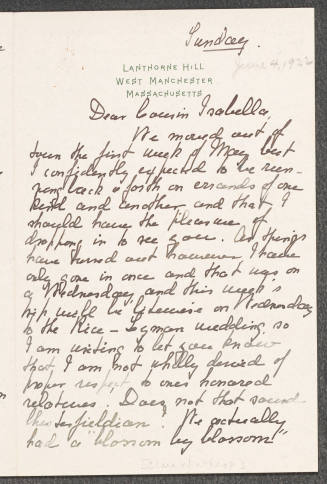 Sunday.
June 4, 1922
LANTHORNE HILL
WEST MANCHESTER
MASSACHUSETTS
Dear Cousin Isabella,
We moved out of
town the first week of May but
I confidently expected to be run-
ning back & forth on errands of one
kind and another and that I
should have the pleasure of
dropping in to see you. As things
have turned out however I have
only gone in once and that was on
a Wednesday, and this week's
trip will be likewise on Wednesday
to the Rice-Lyman wedding, so
I am writing to let you know
that I am not wholly devoid of
proper respect to one's honored
relatives. Does not that sound
Chesterfieldian? We actually
had a "blossom by blossom"